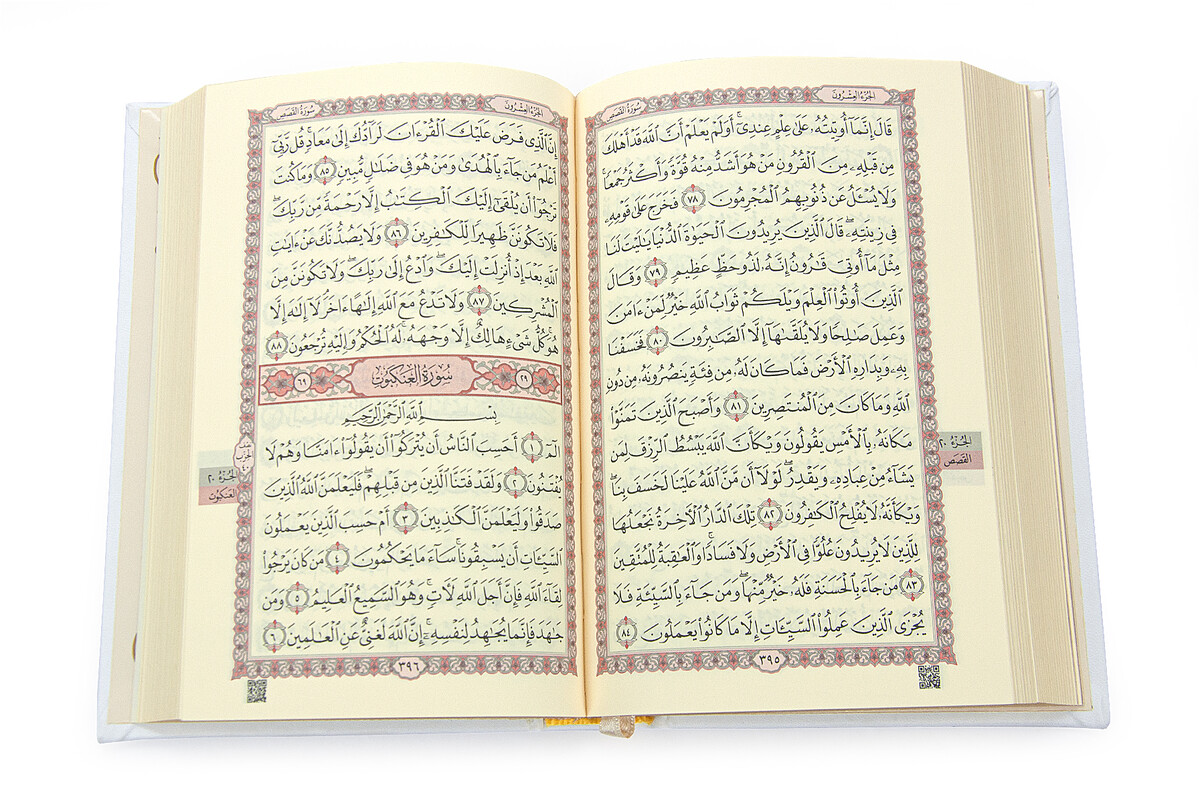 الجزء العشرون
سورة القصص
قَالَ إِنَّمَآ أُوتِيتُهُۥ عَلَىٰ عِلْمٍ عِندِىٓ ۚ أَوَلَمْ يَعْلَمْ أَنَّ ٱللَّهَ قَدْ أَهْلَكَ
مِن قَبْلِهِۦ مِنَ ٱلْقُرُونِ مَنْ هُوَ أَشَدُّ مِنْهُ قُوَّةً وَأَكْثَرُ جَمْعًا ۚ
وَلَا يُسْـَٔلُ عَن ذُنُوبِهِمُ ٱلْمُجْرِمُونَ ٧٨ فَخَرَجَ عَلَىٰ قَوْمِهِۦ
فِى زِينَتِهِۦ ۖ قَالَ ٱلَّذِينَ يُرِيدُونَ ٱلْحَيَوٰةَ ٱلدُّنْيَا يَـٰلَيْتَ لَنَا
مِثْلَ مَآ أُوتِىَ قَـٰرُونُ إِنَّهُۥ لَذُو حَظٍّ عَظِيمٍ ٧٩ وَقَالَ
ٱلَّذِينَ أُوتُوا۟ ٱلْعِلْمَ وَيْلَكُمْ ثَوَابُ ٱللَّهِ خَيْرٌ لِّمَنْ ءَامَنَ
وَعَمِلَ صَـٰلِحًا وَلَا يُلَقَّىٰهَآ إِلَّا ٱلصَّـٰبِرُونَ ٨٠ فَخَسَفْنَا
بِهِۦ وَبِدَارِهِ ٱلْأَرْضَ فَمَا كَانَ لَهُۥ مِن فِئَةٍ يَنصُرُونَهُۥ مِن دُونِ
ٱللَّهِ وَمَا كَانَ مِنَ ٱلْمُنتَصِرِينَ ٨١ وَأَصْبَحَ ٱلَّذِينَ تَمَنَّوْا۟
مَكَانَهُۥ بِٱلْأَمْسِ يَقُولُونَ وَيْكَأَنَّ ٱللَّهَ يَبْسُطُ ٱلرِّزْقَ لِمَن
يَشَآءُ مِنْ عِبَادِهِۦ وَيَقْدِرُ ۖ لَوْلَآ أَن مَّنَّ ٱللَّهُ عَلَيْنَا لَخَسَفَ بِنَا ۖ
وَيْكَأَنَّهُۥ لَا يُفْلِحُ ٱلْكَـٰفِرُونَ ٨٢ تِلْكَ ٱلدَّارُ ٱلْـَٔاخِرَةُ نَجْعَلُهَا
لِلَّذِينَ لَا يُرِيدُونَ عُلُوًّا فِى ٱلْأَرْضِ وَلَا فَسَادًا ۚ وَٱلْعَـٰقِبَةُ لِلْمُتَّقِينَ
٨٣ مَن جَآءَ بِٱلْحَسَنَةِ فَلَهُۥ خَيْرٌ مِّنْهَا ۖ وَمَن جَآءَ بِٱلسَّيِّئَةِ فَلَا
يُجْزَى ٱلَّذِينَ عَمِلُوا۟ ٱلسَّيِّـَٔاتِ إِلَّا مَا كَانُوا۟ يَعْمَلُونَ ٨٤
٣٩٥
الجزء ٢٠
القصص
الجزء العشرون
سورة القصص
إِنَّ ٱلَّذِى فَرَضَ عَلَيْكَ ٱلْقُرْءَانَ لَرَآدُّكَ إِلَىٰ مَعَادٍ ۚ قُل رَّبِّىٓ
أَعْلَمُ مَن جَآءَ بِٱلْهُدَىٰ وَمَنْ هُوَ فِى ضَلَـٰلٍ مُّبِينٍ ٨٥ وَمَا كُنتَ
تَرْجُوٓا۟ أَن يُلْقَىٰٓ إِلَيْكَ ٱلْكِتَـٰبُ إِلَّا رَحْمَةً مِّن رَّبِّكَ ۖ
فَلَا تَكُونَنَّ ظَهِيرًا لِّلْكَـٰفِرِينَ ٨٦ وَلَا يَصُدُّنَّكَ عَنْ ءَايَـٰتِ
ٱللَّهِ بَعْدَ إِذْ أُنزِلَتْ إِلَيْكَ ۖ وَٱدْعُ إِلَىٰ رَبِّكَ ۖ وَلَا تَكُونَنَّ مِنَ
ٱلْمُشْرِكِينَ ٨٧ وَلَا تَدْعُ مَعَ ٱللَّهِ إِلَـٰهًا ءَاخَرَ ۘ لَآ إِلَـٰهَ إِلَّا
هُوَ ۚ كُلُّ شَىْءٍ هَالِكٌ إِلَّا وَجْهَهُۥ ۚ لَهُ ٱلْحُكْمُ وَإِلَيْهِ تُرْجَعُونَ ٨٨
٢٩ سورة العنكبوت ٦٩
بِسْمِ ٱللَّهِ ٱلرَّحْمَـٰنِ ٱلرَّحِيمِ
الٓمٓ ١ أَحَسِبَ ٱلنَّاسُ أَن يُتْرَكُوٓا۟ أَن يَقُولُوٓا۟ ءَامَنَّا وَهُمْ لَا
يُفْتَنُونَ ٢ وَلَقَدْ فَتَنَّا ٱلَّذِينَ مِن قَبْلِهِمْ ۖ فَلَيَعْلَمَنَّ ٱللَّهُ ٱلَّذِينَ
صَدَقُوا۟ وَلَيَعْلَمَنَّ ٱلْكَـٰذِبِينَ ٣ أَمْ حَسِبَ ٱلَّذِينَ يَعْمَلُونَ
ٱلسَّيِّـَٔاتِ أَن يَسْبِقُونَا ۚ سَآءَ مَا يَحْكُمُونَ ٤ مَن كَانَ يَرْجُوا۟
لِقَآءَ ٱللَّهِ فَإِنَّ أَجَلَ ٱللَّهِ لَـَٔاتٍ ۚ وَهُوَ ٱلسَّمِيعُ ٱلْعَلِيمُ ٥ وَمَن
جَـٰهَدَ فَإِنَّمَا يُجَـٰهِدُ لِنَفْسِهِۦٓ ۚ إِنَّ ٱللَّهَ لَغَنِىٌّ عَنِ ٱلْعَـٰلَمِينَ ٦
٣٩٦
الحزب
٤٠
الجزء ٢٠
العنكبوت